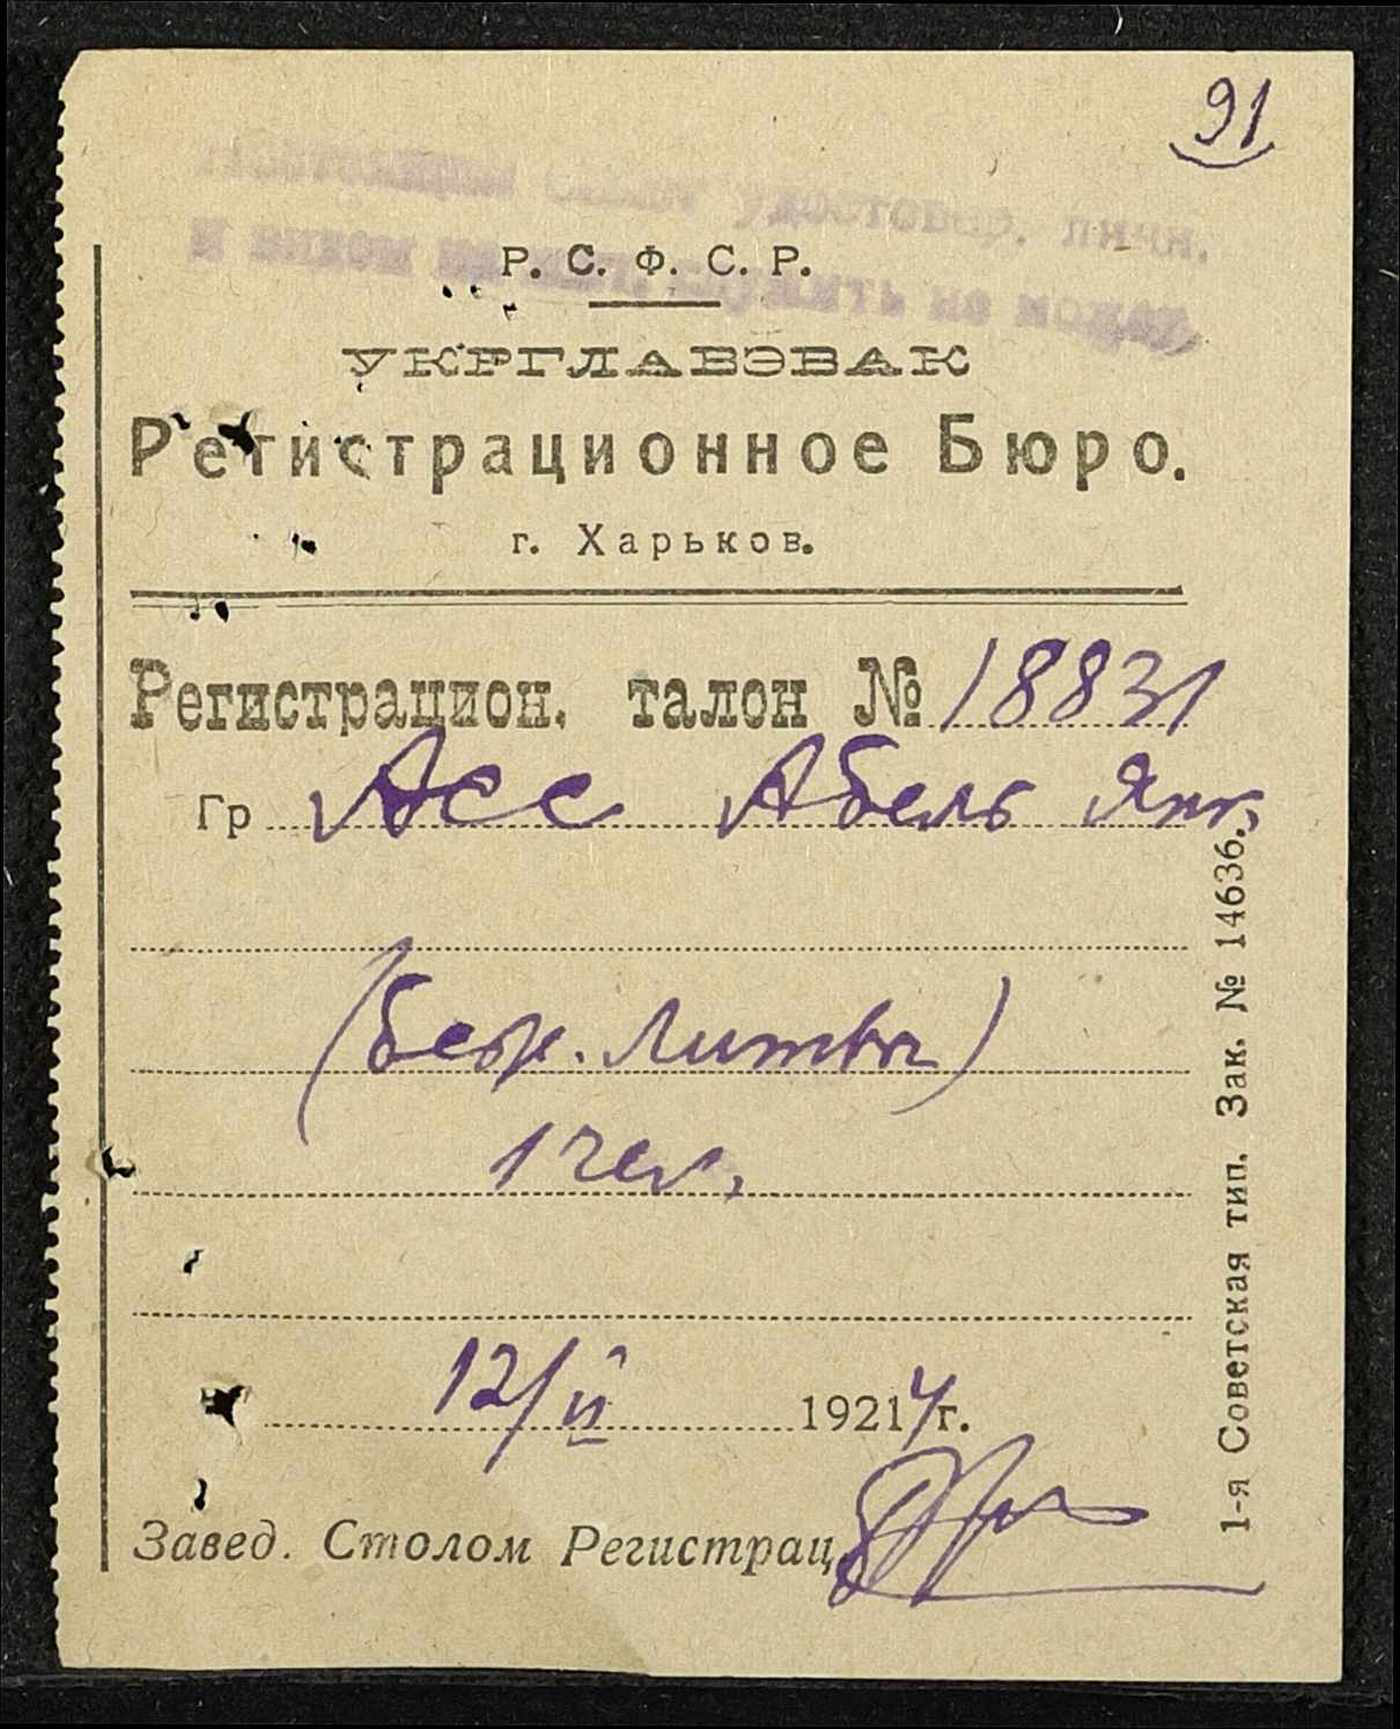 91
удостовер. личн.
и видом на жит. служить не может
Р. С. Ф. С. Р.
УКРГЛАВЭВАК
Регистрационное Бюро.
г. Харьков.
Регистрацион. талон № 18831
Гр Асс Абель Янк.
(беж. Литвы)
1 чел.
12/II 1921 г.
Завед. Столом Регистрац.
1-я Советская тип. Зак. № 14636.